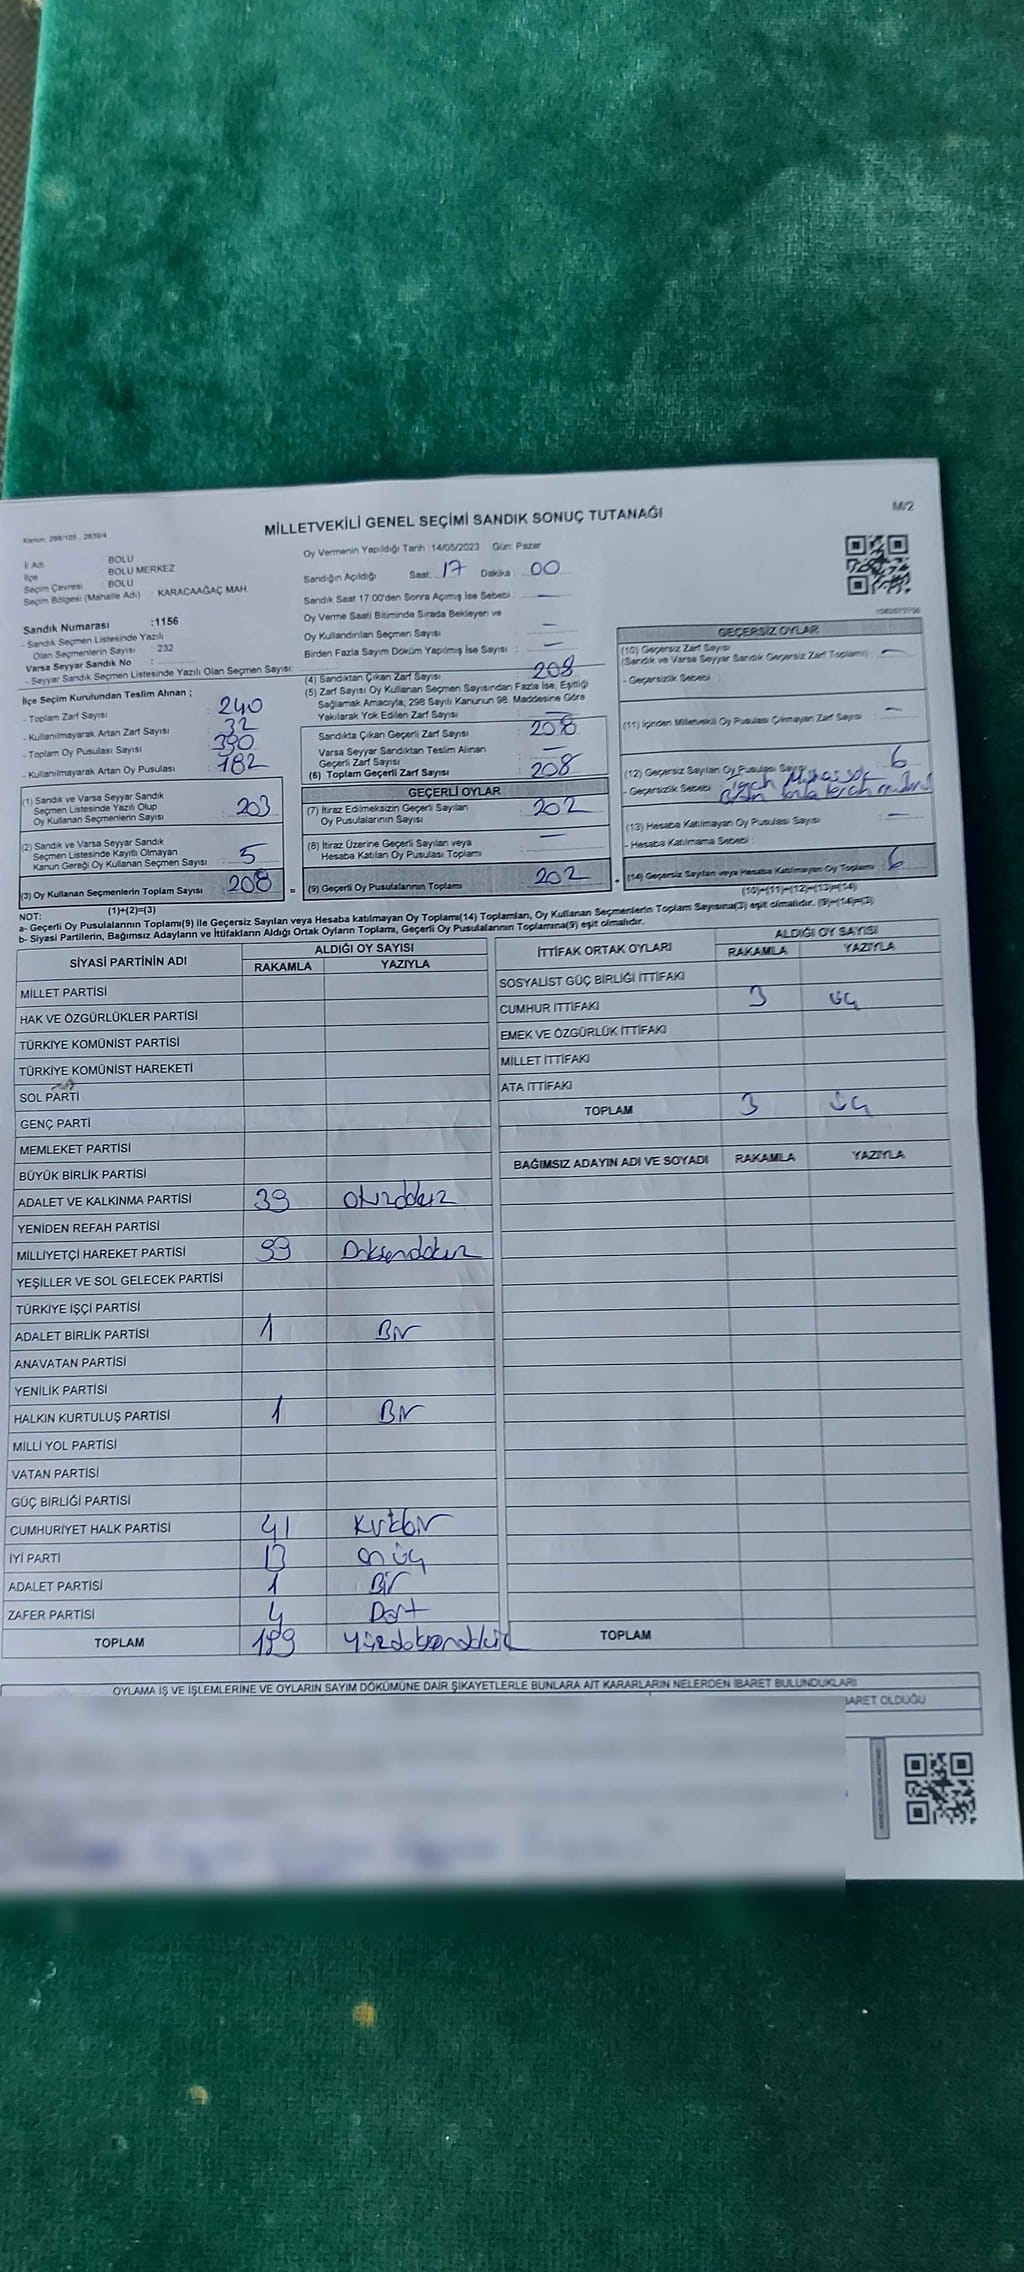 Kanun: 298/105 , 2839/4
MİLLETVEKİLİ GENEL SEÇİMİ SANDIK SONUÇ TUTANAĞI
M/2
İl Adı : BOLU
İlçe : BOLU MERKEZ
Seçim Çevresi : BOLU
Seçim Bölgesi (Mahalle Adı) : KARACAAĞAÇ MAH
Sandık Numarası :1156
- Sandık Seçmen Listesinde Yazılı
Olan Seçmenlerin Sayısı 232
Varsa Seyyar Sandık No :
- Seyyar Sandık Seçmen Listesinde Yazılı Olan Seçmen Sayısı:
İlçe Seçim Kurulundan Teslim Alınan ;
- Toplam Zarf Sayısı : 240
- Kullanılmayarak Artan Zarf Sayısı : 32
- Toplam Oy Pusulası Sayısı : 390
- Kullanılmayarak Artan Oy Pusulası : 182
(1) Sandık ve Varsa Seyyar Sandık
Seçmen Listesinde Yazılı Olup
Oy Kullanan Seçmenlerin Sayısı : 203
(2) Sandık ve Varsa Seyyar Sandık
Seçmen Listesinde Kayıtlı Olmayan
Kanun Gereği Oy Kullanan Seçmen Sayısı : 5
(3) Oy Kullanan Seçmenlerin Toplam Sayısı : 208 =
(1)+(2)=(3)
Oy Vermenin Yapıldığı Tarih :14/05/2023 Gün: Pazar
Sandığın Açıldığı Saat: 17 Dakika : 00
Sandık Saat 17.00'den Sonra Açımış İse Sebebi : —
Oy Verme Saati Bitiminde Sırada Bekleyen ve
Oy Kullandırılan Seçmen Sayısı : —
Birden Fazla Sayım Döküm Yapılmış İse Sayısı : —
(4) Sandıktan Çıkan Zarf Sayısı : 208
(5) Zarf Sayısı Oy Kullanan Seçmen Sayısından Fazla İse, Eşitliği
Sağlamak Amacıyla, 298 Sayılı Kanunun 98. Maddesine Göre
Yakılarak Yok Edilen Zarf Sayısı : —
Sandıkta Çıkan Geçerli Zarf Sayısı : 208
Varsa Seyyar Sandıktan Teslim Alınan
Geçerli Zarf Sayısı : —
(6) Toplam Geçerli Zarf Sayısı : 208
GEÇERLİ OYLAR
(7) İtiraz Edilmeksizin Geçerli Sayılan
Oy Pusulalarının Sayısı : 202
(8) İtiraz Üzerine Geçerli Sayılan veya
Hesaba Katılan Oy Pusulası Toplamı : —
(9) Geçerli Oy Pusulalarının Toplamı : 202 +
GEÇERSİZ OYLAR
(10) Geçersiz Zarf Sayısı
(Sandık ve Varsa Seyyar Sandık Geçersiz Zarf Toplamı) : —
- Geçersizlik Sebebi :
(11) İçinden Milletvekili Oy Pusulası Çıkmayan Zarf Sayısı : —
(12) Geçersiz Sayılan Oy Pusulası Sayısı : 6
- Geçersizlik Sebebi
(13) Hesaba Katılmayan Oy Pusulası Sayısı : —
- Hesaba Katılmama Sebebi :
(14) Geçersiz Sayılan veya Hesaba Katılmayan Oy Toplamı : 6
(10)+(11)+(12)+(13)=(14)
NOT:
a- Geçerli Oy Pusulalarının Toplamı(9) ile Geçersiz Sayılan veya Hesaba katılmayan Oy Toplamı(14) Toplamları, Oy Kullanan Seçmenlerin Toplam Sayısına(3) eşit olmalıdır. (9)+(14)=(3)
b- Siyasi Partilerin, Bağımsız Adayların ve İttifakların Aldığı Ortak Oyların Toplamı, Geçerli Oy Pusulalarının Toplamına(9) eşit olmalıdır.
SİYASİ PARTİNİN ADI ALDIĞI OY SAYISI
RAKAMLA YAZIYLA
MİLLET PARTİSİ
HAK VE ÖZGÜRLÜKLER PARTİSİ
TÜRKİYE KOMÜNİST PARTİSİ
TÜRKİYE KOMÜNİST HAREKETİ
SOL PARTİ
GENÇ PARTİ
MEMLEKET PARTİSİ
BÜYÜK BİRLİK PARTİSİ
ADALET VE KALKINMA PARTİSİ 39 Otuzdokuz
YENİDEN REFAH PARTİSİ
MİLLİYETÇİ HAREKET PARTİSİ 99 Doksandokuz
YEŞİLLER VE SOL GELECEK PARTİSİ
TÜRKİYE İŞÇİ PARTİSİ
ADALET BİRLİK PARTİSİ 1 Bir
ANAVATAN PARTİSİ
YENİLİK PARTİSİ
HALKIN KURTULUŞ PARTİSİ 1 Bir
MİLLİ YOL PARTİSİ
VATAN PARTİSİ
GÜÇ BİRLİĞİ PARTİSİ
CUMHURİYET HALK PARTİSİ 41 Kırkbir
İYİ PARTİ 13 on üç
ADALET PARTİSİ 1 Bir
ZAFER PARTİSİ 4 Dört
TOPLAM 199 Yüzdoksandokuz
İTTİFAK ORTAK OYLARI ALDIĞI OY SAYISI
RAKAMLA YAZIYLA
SOSYALİST GÜÇ BİRLİĞİ İTTİFAKI
CUMHUR İTTİFAKI 3 üç
EMEK VE ÖZGÜRLÜK İTTİFAKI
MİLLET İTTİFAKI
ATA İTTİFAKI
TOPLAM 3 üç
BAĞIMSIZ ADAYIN ADI VE SOYADI RAKAMLA YAZIYLA
TOPLAM
OYLAMA İŞ VE İŞLEMLERİNE VE OYLARIN SAYIM DÖKÜMÜNE DAİR ŞİKAYETLERLE BUNLARA AİT KARARLARIN NELERDEN İBARET BULUNDUKLARI
BARET OLDUĞU